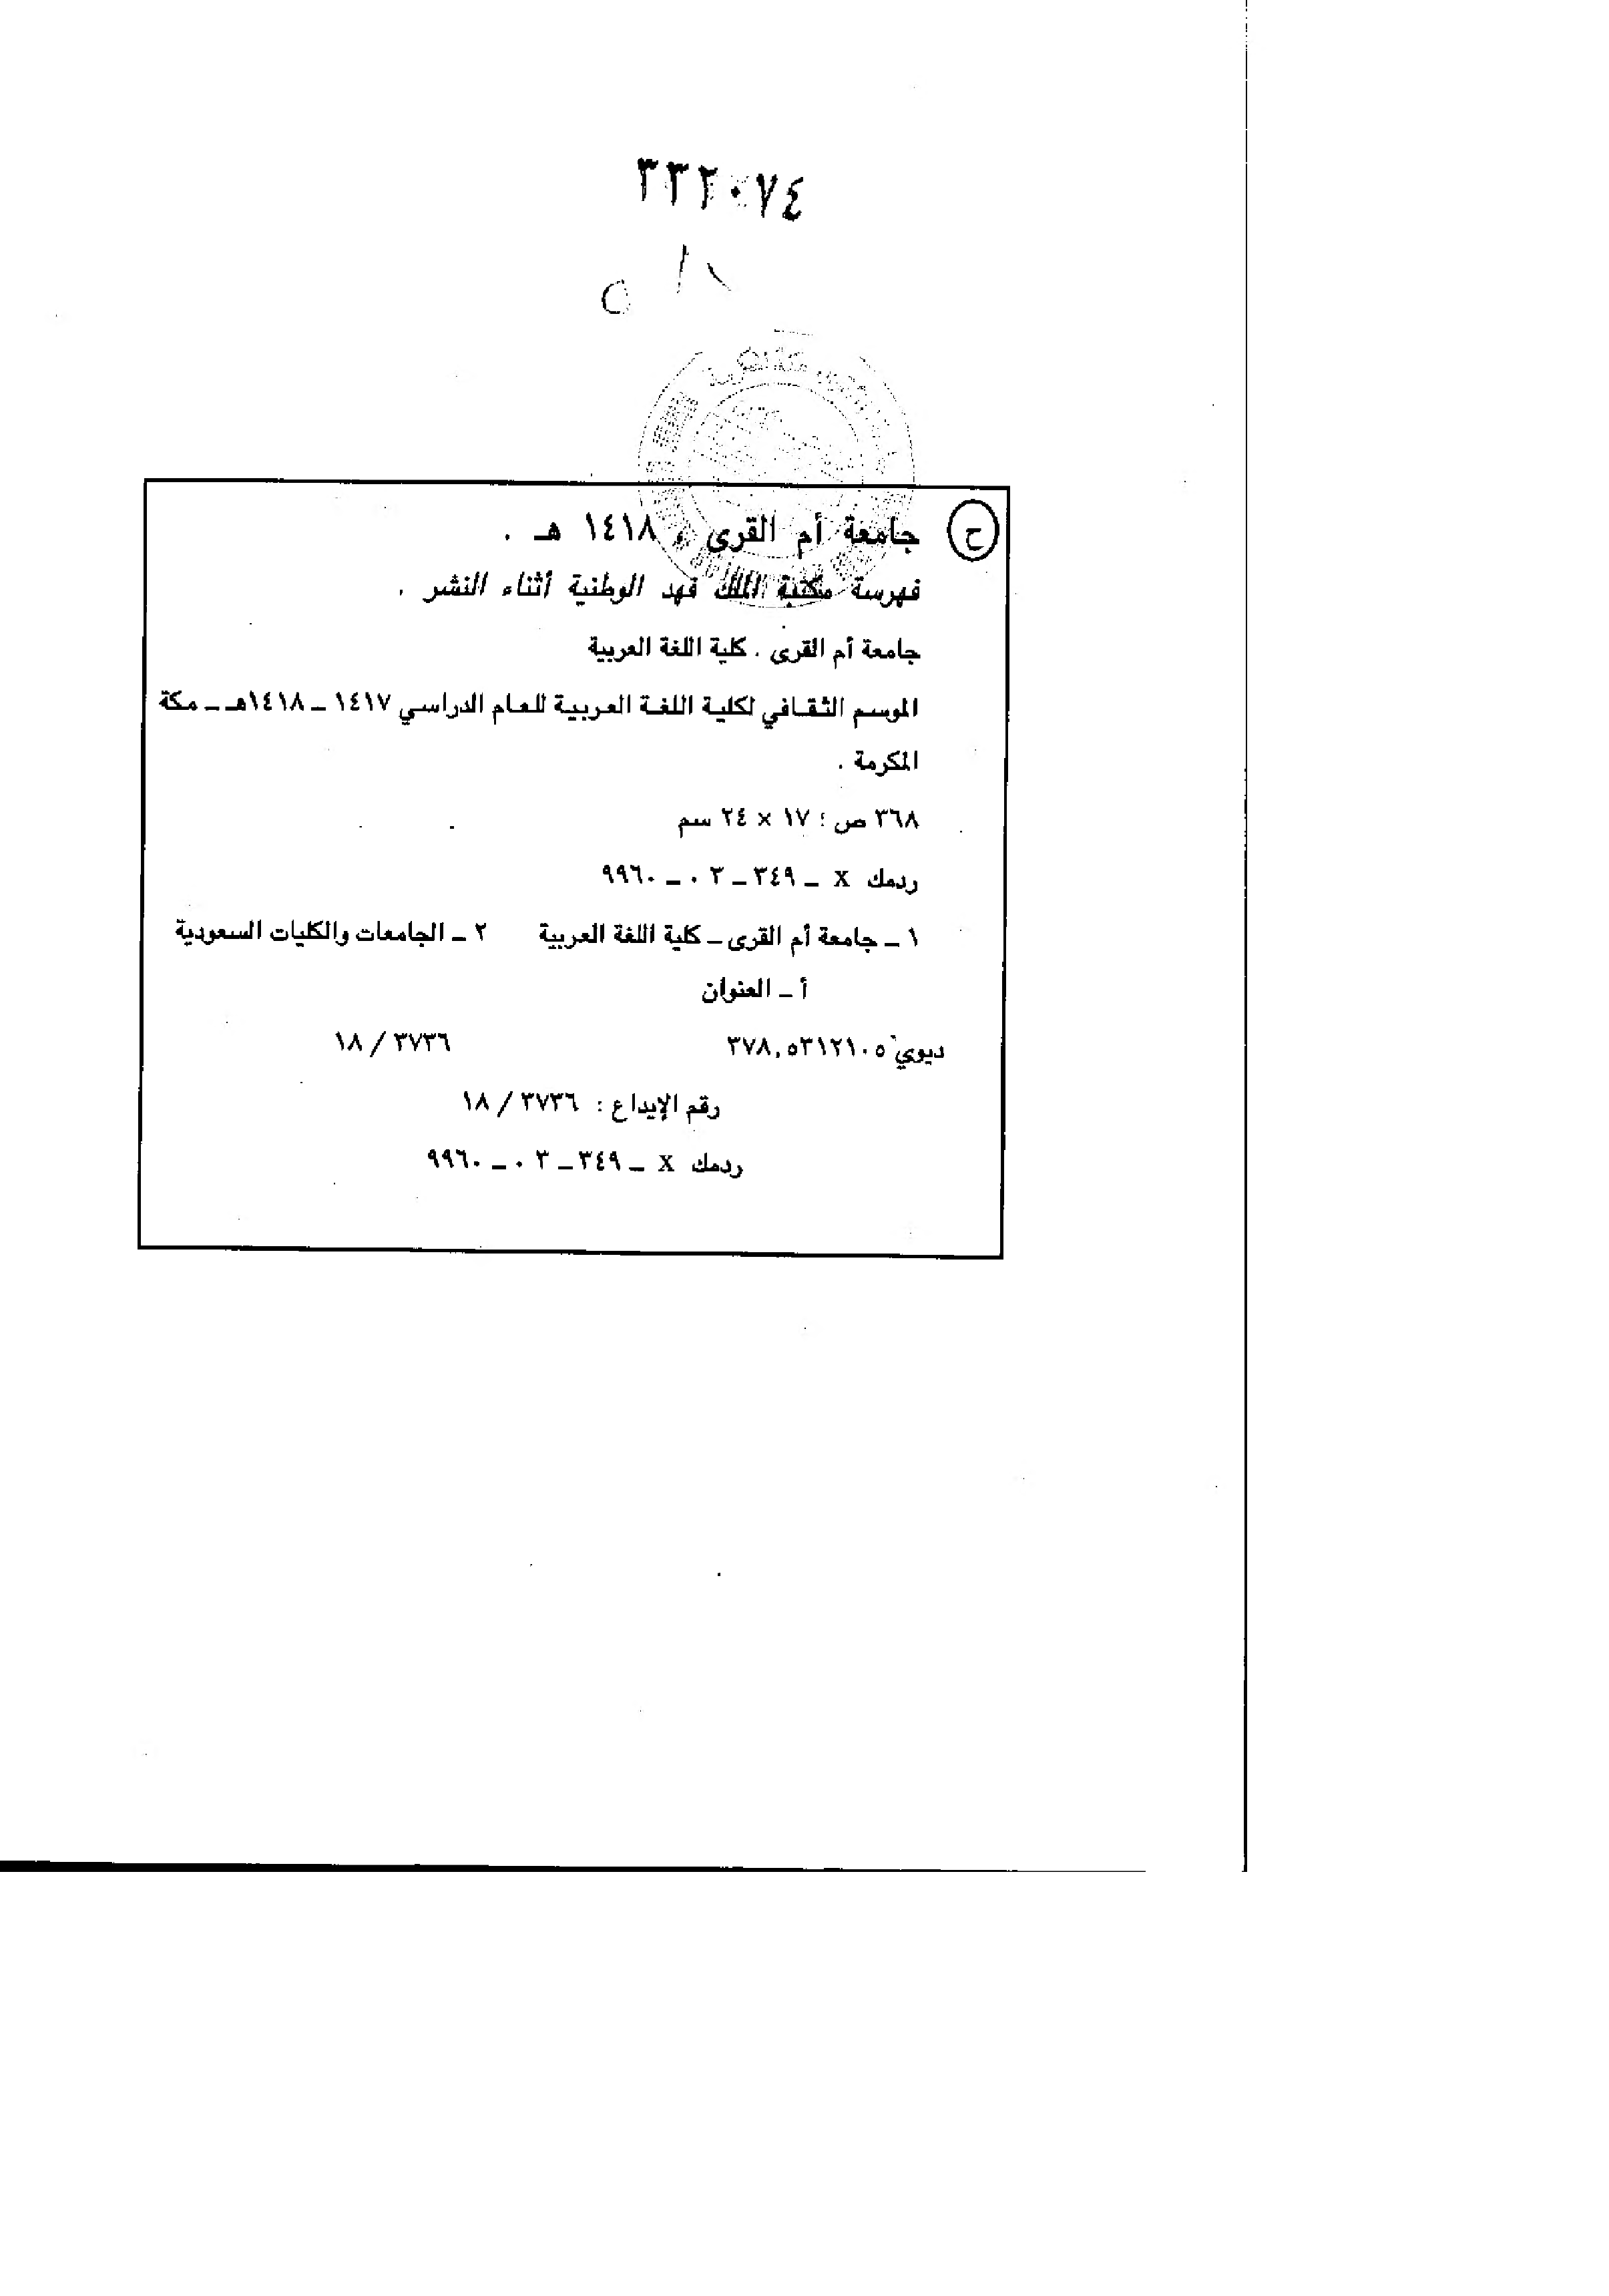 ٣٣٢٠٧٤
ح جامعة أم القرى ، ١٤١٨ هـ .
فهرسة مكتبة الملك فهد الوطنية أثناء النشر .
جامعة أم القرى . كلية اللغة العربية
الموسم الثقافي لكلية اللغة العربية للعام الدراسي ١٤١٧ ــ ١٤١٨هـ ــ مكة
المكرمة .
٣٦٨ ص ؛ ١٧ × ٢٤ سم
ردمك X ــ ٣٤٩ ــ ٠٣ ــ ٩٩٦٠
١ ــ جامعة أم القرى ــ كلية اللغة العربية ٢ ــ الجامعات والكليات السعودية
أ ــ العنوان
ديوي ٣٧٨,٥٣١٢١٠٥ ٣٧٣٦ / ١٨
رقم الإيداع : ٣٧٣٦ / ١٨
ردمك X ــ ٣٤٩ ــ ٠٣ ــ ٩٩٦٠